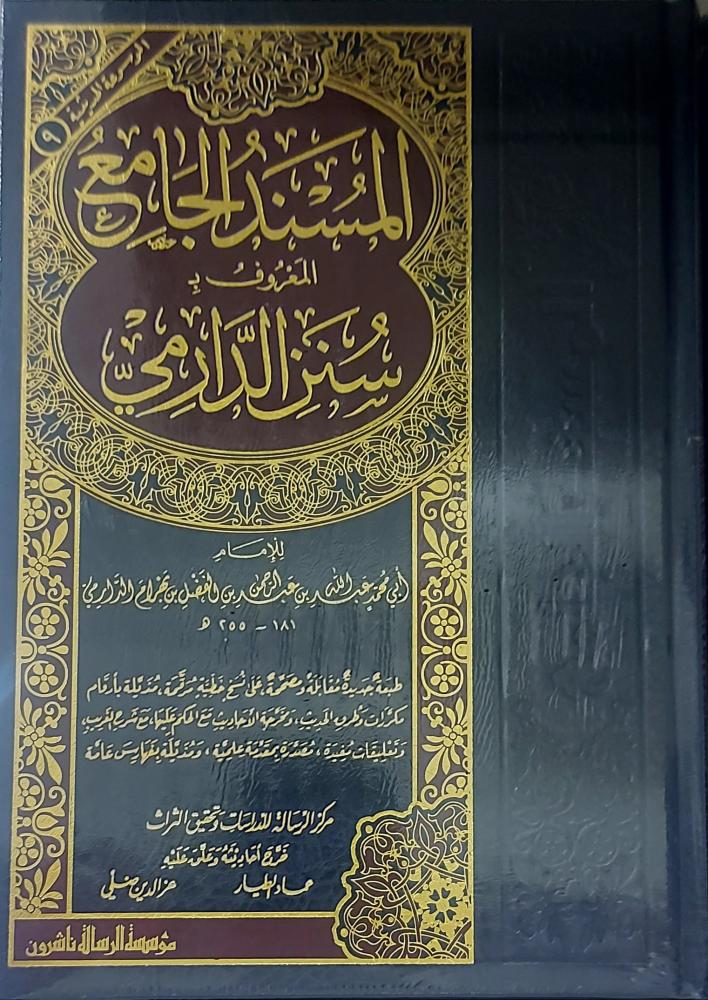 الموسوعة الحديثية
٩
المُسْنَدُ الجَامِعُ
المَعْرُوفُ بِـ
سُنَنِ الدَّارِمِيِّ
لِلإِمَامِ
أَبِي مُحَمَّدٍ عَبْدِ اللهِ بْنِ عَبْدِ الرَّحْمَنِ بْنِ الفَضْلِ بْنِ بَهْرَامَ الدَّارِمِيِّ
١٨١ - ٢٥٥ هـ
طبعة جديدة مقابلة ومصححة على نسخ خطية مرقمة، مذيلة بأرقام
مكررات وطرق الحديث، ومخرجة الأحاديث مع الحكم عليها، مع شرح الغريب،
وتعليقات مفيدة، مصدرة بمقدمة علمية، ومذيلة بفهارس عامة
مركز الرسالة للدراسات وتحقيق التراث
خرج أحاديثه وعلق عليه
عماد الطيار
عز الدين ضلي
مؤسسة الرسالة ناشرون